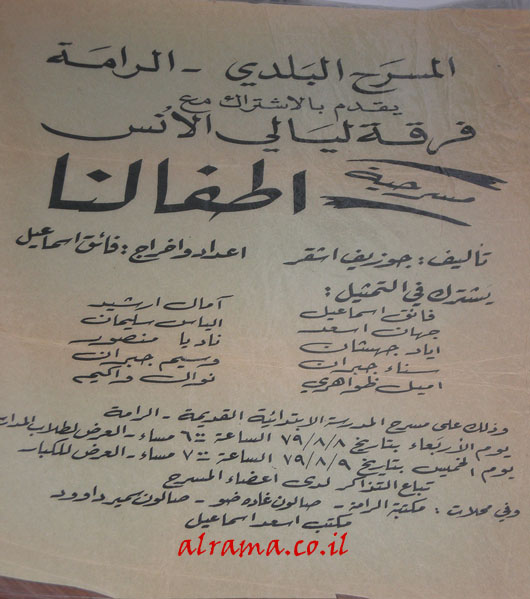 المسرح البلدي - الرامة
يقدم بالاشتراك مع
فرقة ليالي الأنس
مسرحية اطفالنا
تأليف: جوزيف اشقر اعداد واخراج: فائق اسماعيل
يشترك في التمثيل:
فائق اسماعيل آمال ارشيد
جهان اسعد الياس سليمان
اياد جهشان ناديا منصور
سناء جبران وسيم جبران
اميل ظواهري نوال واكيم
وذلك على مسرح المدرسة الابتدائية القديمة - الرامة
يوم الأربعاء بتاريخ ٧٩/٨/٨ الساعة ٦:٠٠ مساء - العرض لطلاب المدار
يوم الخميس بتاريخ ٧٩/٨/٩ الساعة ٧:٠٠ مساء - العرض للكبار
تباع التذاكر لدى اعضاء المسرح
وفي محلات: مكتبة الرامة - صالون غاده ضو - صالون سمير داوود
مكتب اسعد اسماعيل
alrama.co.il